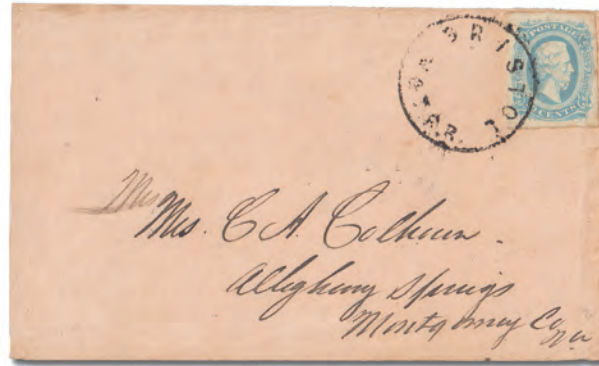 BRISTOL
POSTAGE
CENTS
Mrs
Mrs. C A. Calhoun.
Alleghany Springs
Montgomery Co
Va